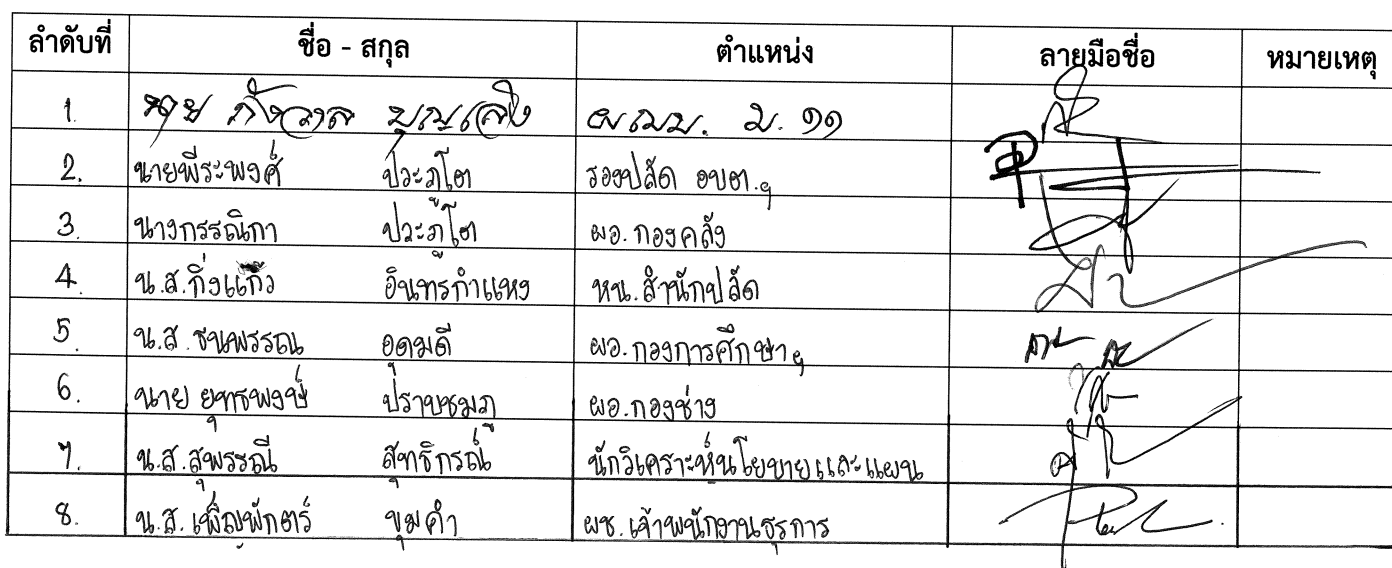 ลำดับที่ ชื่อ - สกุล ตำแหน่ง ลายมือชื่อ หมายเหตุ
1. นาย กังวาล บุญเลิง ผญบ. ม. ๑๑
2. นายพีระพงศ์ ประภูโต รองปลัด อบต.ฯ
3. นางกรรณิกา ประภูโต ผอ.กองคลัง
4. น.ส.กิ่งแก้ว อินทรกำแหง หน.สำนักปลัด
5. น.ส.ธนพรรณ อุดมดี ผอ.กองการศึกษาฯ
6. นาย ยุทธพงษ์ ปราบชมภู ผอ.กองช่าง
7. น.ส.สุพรรณี สุทธิกรณ์ นักวิเคราะห์นโยบายและแผน
8. น.ส.เพ็ญพักตร์ ขุมคำ ผช.เจ้าพนักงานธุรการ